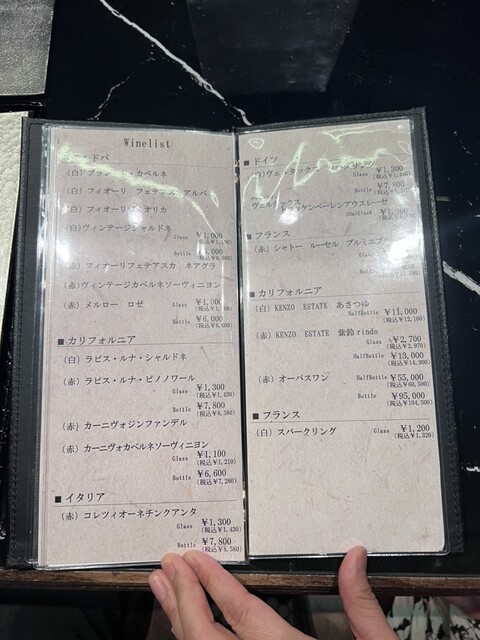 Winelist
ルドバ
(白) ブラン・カベルネ
(白) フィオーリ フェテアスカ アルバ
(白) フィオーリ オリカ
(白) ヴィンテージシャルドネ
Glass ¥1,000
Bottle
(赤) フィオーリフェテアスカ ネアグラ
(赤) ヴィンテージカベルネソーヴィニヨン
(赤) メルロー ロゼ Glass ¥1,000
Bottle ¥6,000
(税込¥6,600)
■ カリフォルニア
(白) ラピス・ルナ・シャルドネ
(赤) ラピス・ルナ・ピノノワール
Glass ¥1,300
(税込¥1,430)
Bottle ¥7,800
(税込¥8,580)
(赤) カーニヴォジンファンデル
(赤) カーニヴォカベルネソーヴィニヨン
Glass ¥1,100
(税込¥1,210)
Bottle ¥6,600
(税込¥7,260)
■ イタリア
(赤) コレツィオーネチンクアンタ
Glass ¥1,300
(税込¥1,430)
Bottle ¥7,800
(税込¥8,580)
■ ドイツ
(白) ヴェルタックス
Glass ¥1,300
Bottle ¥7,800
ヴェルタックス ッケンベーレンアウスレーゼ
30mlGlass
■ フランス
(赤) シャトー ルーセル プルミエ
■ カリフォルニア
(白) KENZO ESTATE あさつゆ
HalfBottle ¥11,000
(税込¥12,100)
(赤) KENZO ESTATE 紫鈴 rindo
Glass ¥2,700
(税込¥2,970)
HalfBottle ¥13,000
(税込¥14,300)
(赤) オーパスワン HalfBottle ¥55,000
(税込¥60,500)
Bottle ¥95,000
(税込¥104,500)
■ フランス
(白) スパークリング Glass ¥1,200
(税込¥1,320)